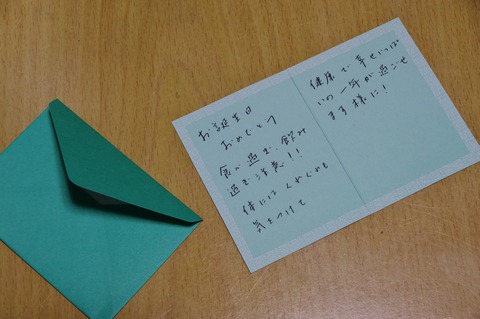 お誕生日
おめでとう
食べ過ぎ、飲み
過ぎ注意!!
体にはくれぐれも
気をつけて
健康で幸せいっぱ
いの一年が過ごせ
ます様に!